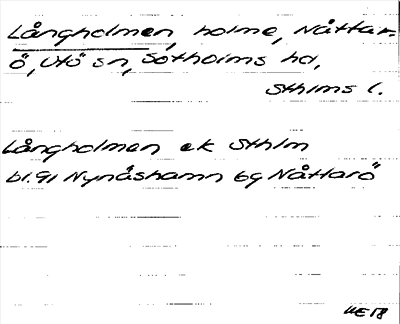 Långholmen, holme, Nåttar-
ö, Utö sn, Sotholms hd,
Sthlms l.
Långholmen ek Sthlm
bl.91 Nynäshamn 6g Nåttarö